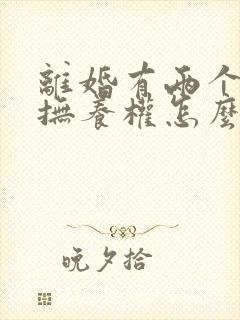 離婚有兩个
撫養權怎麼
晚夕拾